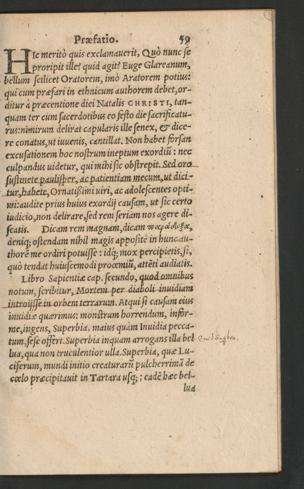 Præfatio. 59
HIc meritò quis exclamauerit, Quò nunc se
proripit ille? quid agit? Euge Glareanum,
bellum scilicet Oratorem, imò Aratorem potius:
qui cum præfari in ethnicum authorem debet, or-
ditur à præcentione diei Natalis CHRISTI, tan-
quam ter cum sacerdotibus eo festo die sacrificatu-
rus: nimirum delirat capularis ille senex, & dice-
re conatus, ut iuuenis, cantillat. Non habet forsan
excusationem hoc nostrum ineptum exordiũ: nec
culpandus uidetur, qui mihi sic obstrepit. Sed oro
sustinete paulisper, ac patientiam mecum, ut dici-
tur, habete, Ornatißimi uiri, ac adolescentes opti-
mi: audite prius huius exordij causam, ut sic certo
iudicio, non delirare, sed rem seriam nos agere di-
scatis. Dicam rem magnam, dicam
deniq; ostendam nihil magis appositè in hunc au-
thorẽ me ordiri potuisse: idq; mox percipietis, si,
quò tendat huiuscemodi prooemiũ, attẽti audiatis.
Libro Sapientiæ cap. secundo, quod omnibus
notum, scribitur, Mortem per diaboli inuidiam
introijsse in orbem terrarum. At qui si causam eius
inuidiæ quærimus: monstrum horrendum, infor-
me, ingens, Superbia, maius quàm Inuidia pecca-
tum, sese offert. Superbia inquam arrogans illa bel
lua, qua non truculentior ulla. Superbia, quæ Lu-
ciferum, mundi initio creaturarũ pulcherrimã de
coelo præcipitauit in Tartara usq;: eadẽ hæc bel-
lua